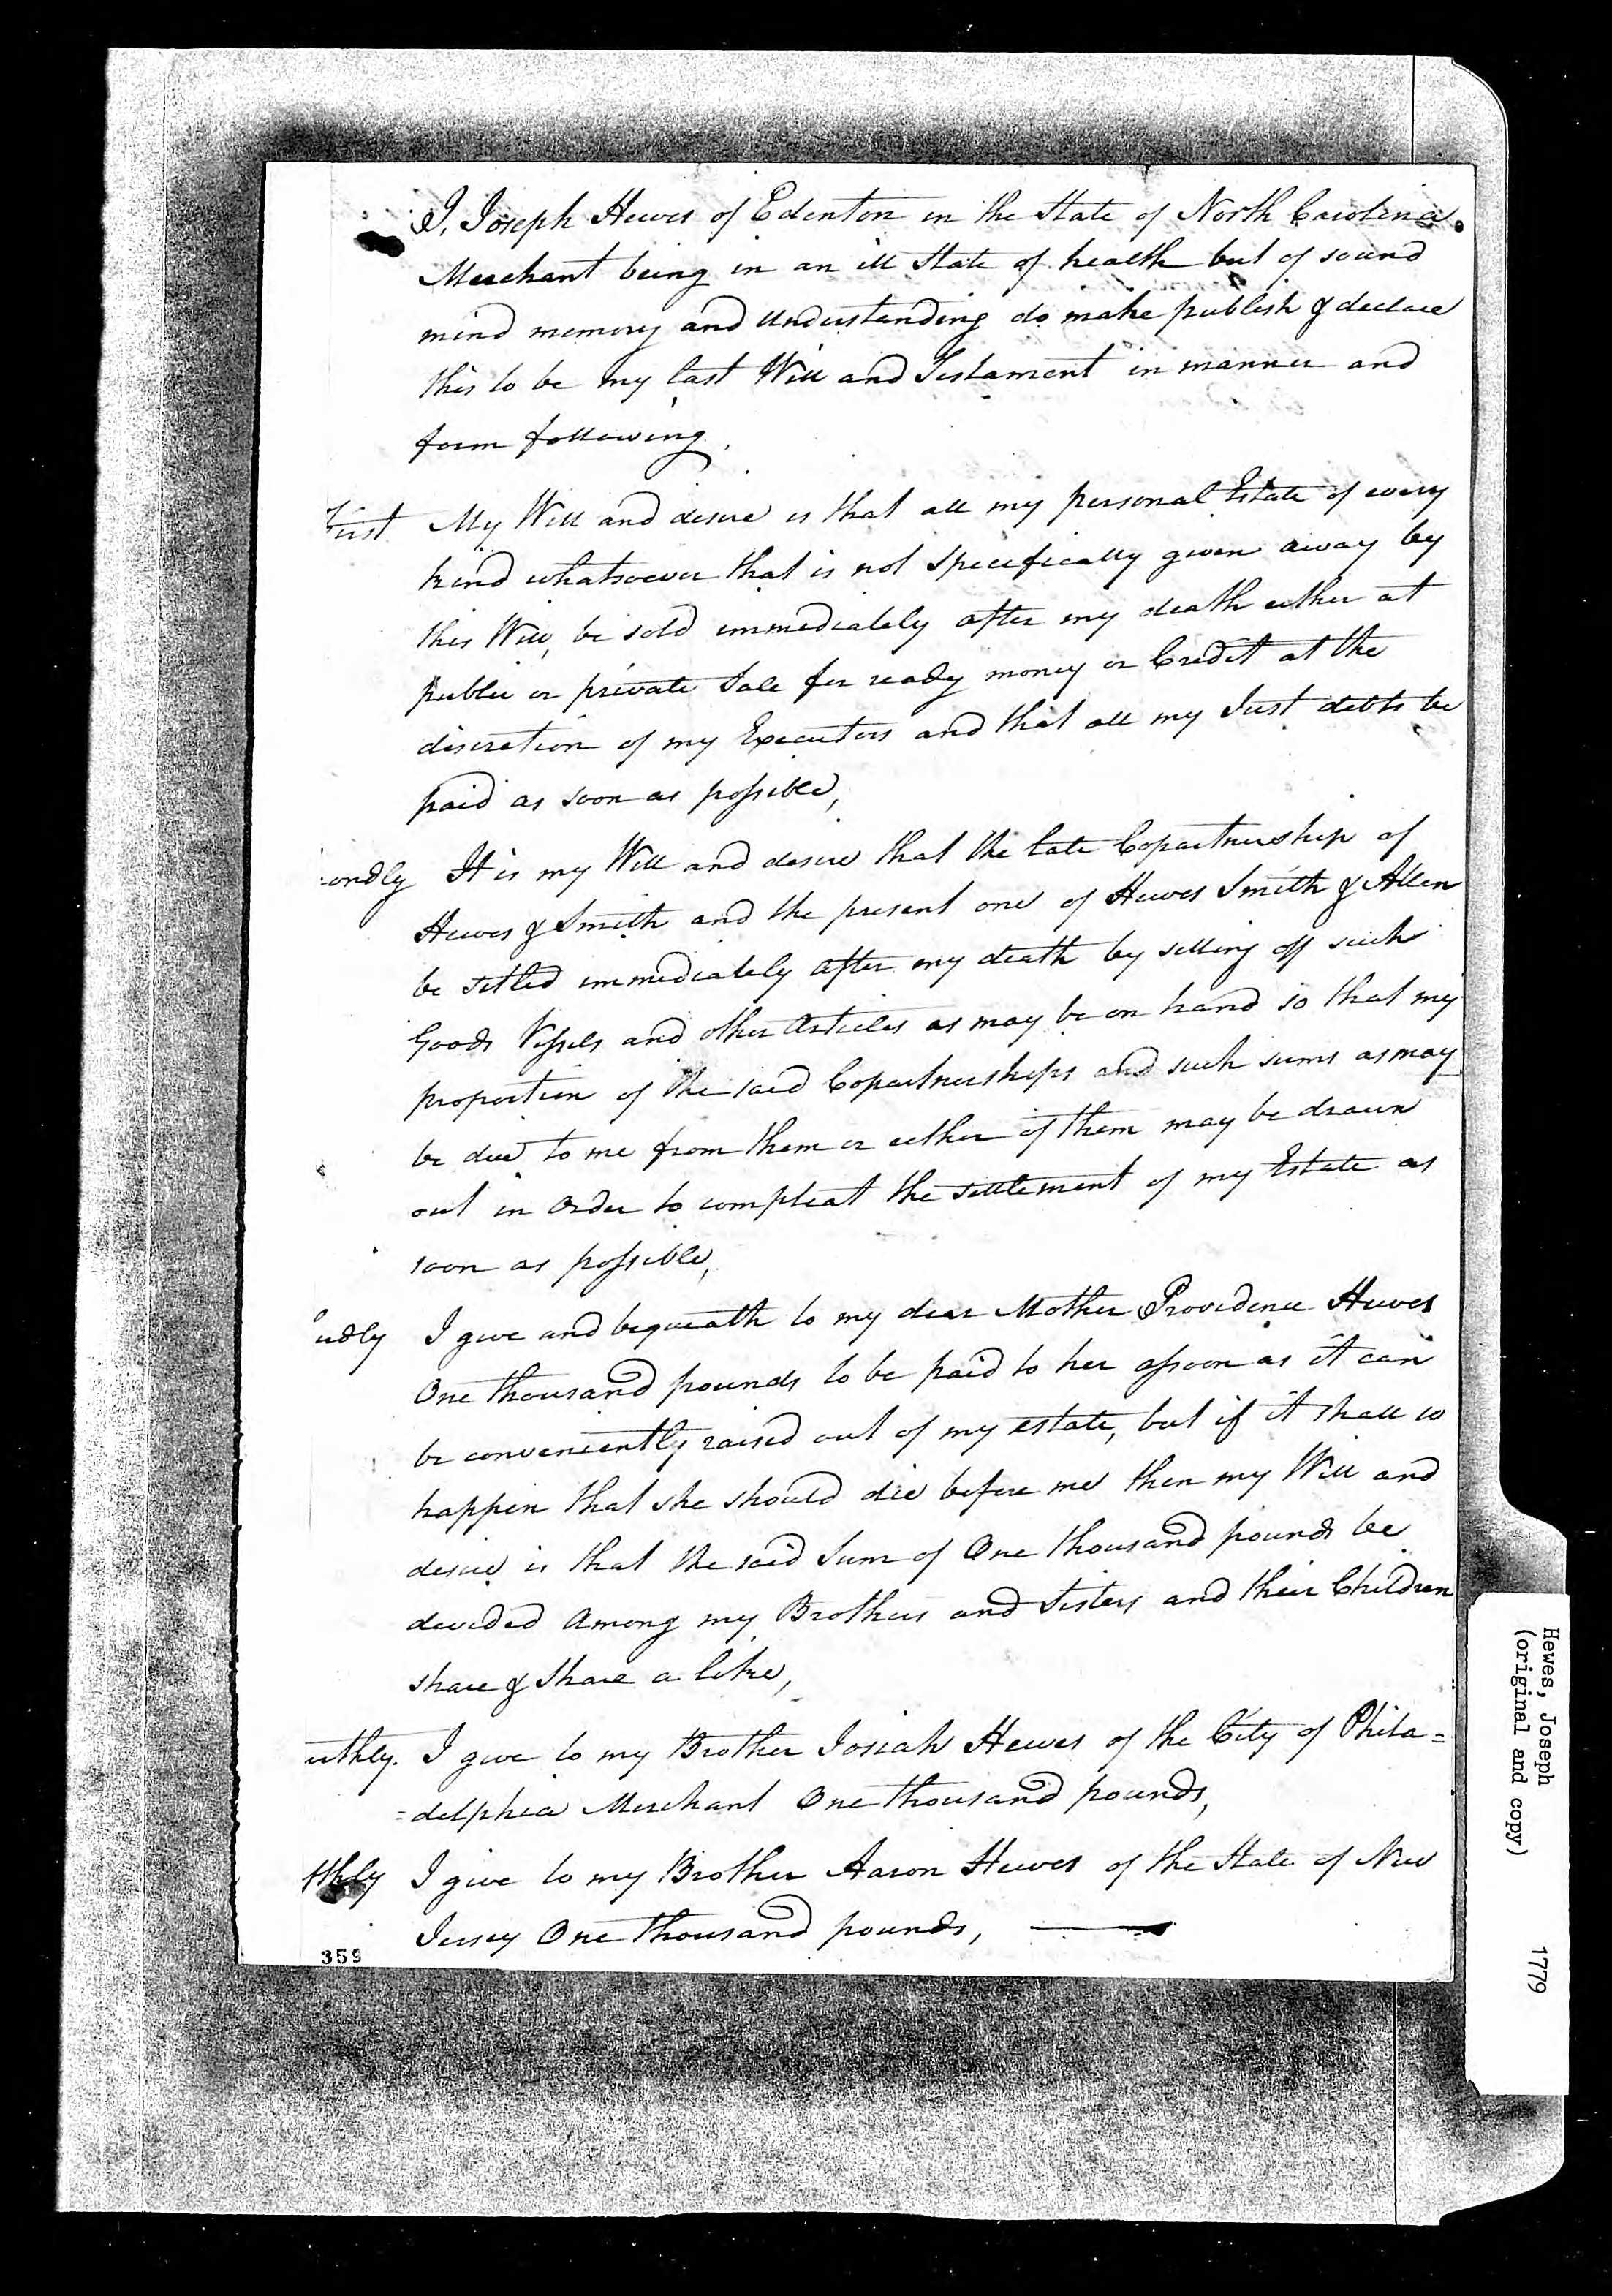 I, Joseph Hewes of Edenton in the State of North Carolina
Merchant being in an ill State of health but of sound
mind memory and Understanding do make publish & declare
this to be my last Will and Testament in manner and
form following,
First My Will and desire is that all my personal Estate of every
kind whatsoever that is not Specifically given away by
this Will, be sold immediately after my death either at
public or private Sale for ready money or Credit at the
discretion of my Executors and that all my Just debts be
paid as soon as possible,
ondly It is my Will and desire that the late Copartnership of
Hewes & Smith and the present one of Hewes Smith & Allen
be setled immediately after my death by selling off such
Goods Vessels and other Articles as may be on hand so that my
proportion of the said Copartnerships and such sums as may
be due to me from them or either of them may be drawn
out in Order to compleat the settlement of my Estate as
soon as possible,
rdly I give and bequeath to my dear Mother Providence Hewes
One thousand pounds to be paid to her assoon as it can
be conveniently raised out of my estate, but if it shall so
happen that she should die before me then my Will and
desire is that the said Sum of One thousand pounds be
devided Among my Brothers and Sisters and their Children
share & share a like,
urthly. I give to my Brother Josiah Hewes of the City of Phila=
=delphia Merchant One thousand pounds,
fthly I give to my Brother Aaron Hewes of the State of New
Jersey One thousand pounds,
359
Hewes, Joseph 1779
(original and copy)